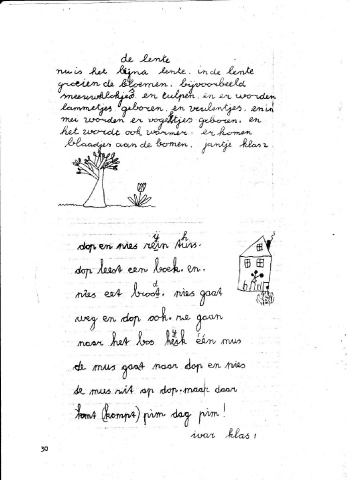 de lente
nu is het bijna lente. in de lente
groeien de bloemen. bijvoorbeeld
sneeuwklokjes en tulpen. en er worden
lammetjes geboren. en veulentjes. en in
mei worden er vogeltjes geboren. en
het wordt ook warmer. er komen
blaadjes aan de bomen. jantje klas 2
dop en nies zijn thuis.
dop leest een boek. en.
nies eet brood. nies gaat
weg en dop ook. we gaan
naar het bos één mus
de mus gaat naar dop en nies
de mus zit op dop. maar daar
komt (kompt) pim dag pim!
ivar klas 1
30